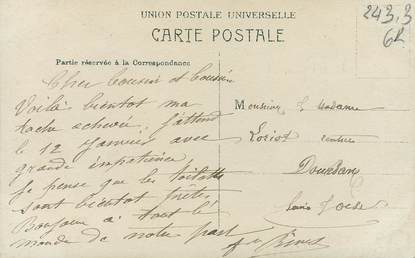 UNION POSTALE UNIVERSELLE
CARTE POSTALE
243,3
6R
Partie réservée à la Correspondance
Cher Cousin et Cousine
Voilà bientot ma
tache achevé, j'attend
le 12 Janvier avec
grande impatience
je pense que les toilettes
sont bientot prête
Bonjour à tout le
monde de notre part
Monsieur et Madame
Loriot
Dourdan
Seine et Oise